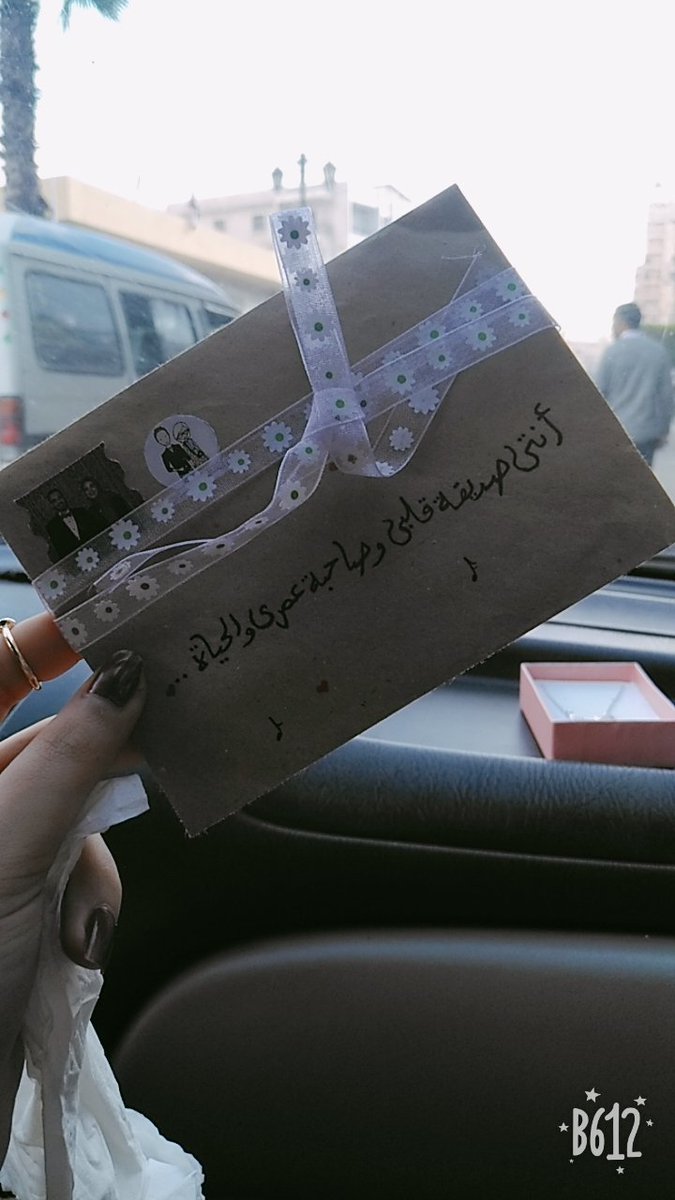 أنتي صديقة قلبي وصاحبة عمري والحياة...
B612